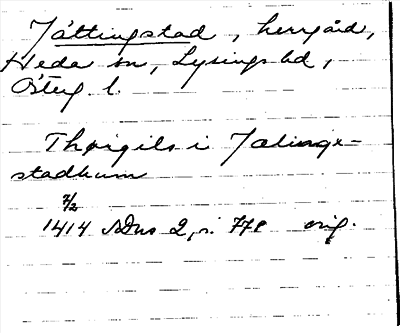 Jättingstad, herrgård,
Heda sn, Lysings hd,
Österg. l.
Thorgils i Jælings-
stadhum
7/2
1414 SDns 2, s. 778 orig.